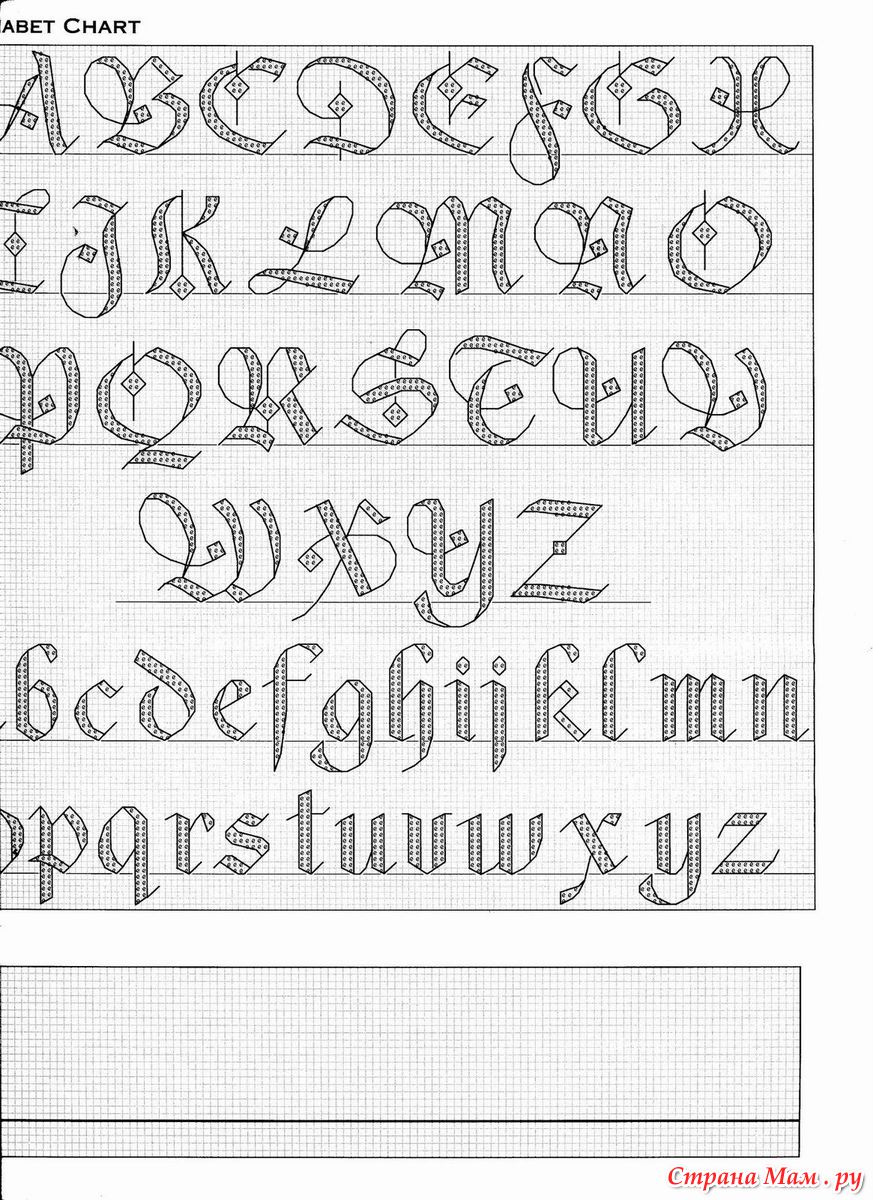 ABET CHART
A B C D E F G H
I J K L M N O
P Q R S T U V
W X Y Z
b c d e f g h i j k l m n
o p q r s t u v w x y z
Страна Мам . ру